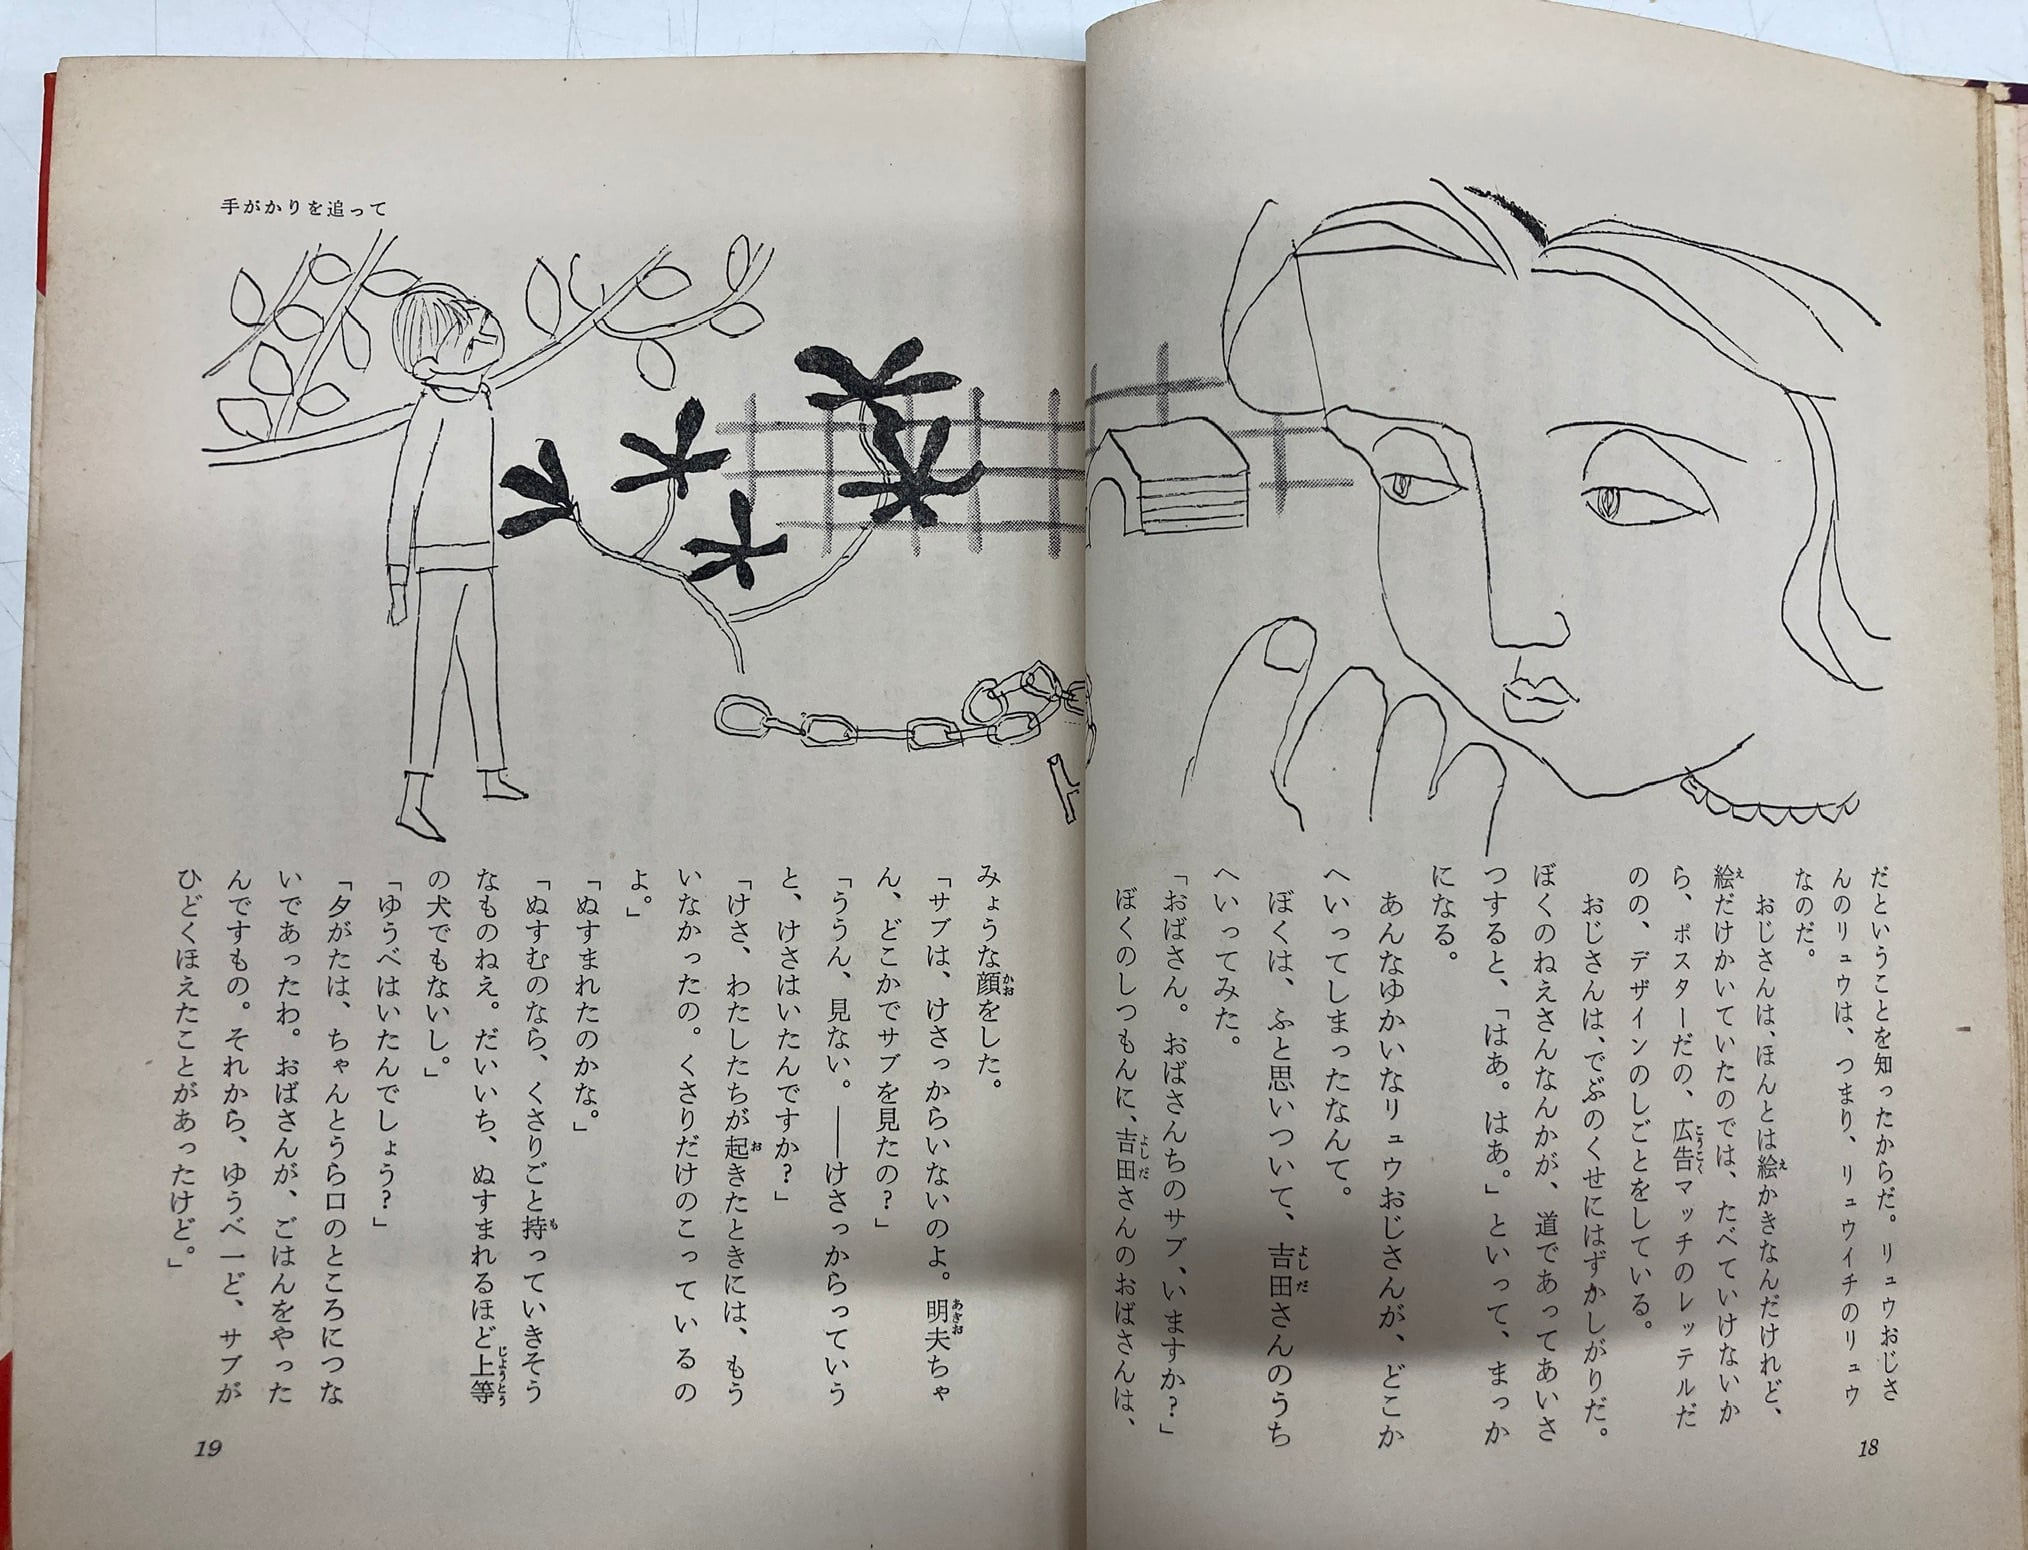 だということを知ったからだ。リュウおじさ
んのリュウは、つまり、リュウイチのリュウ
なのだ。
おじさんは、ほんとは絵かきなんだけれど、
絵だけかいていたのでは、たべていけないか
ら、ポスターだの、広告マッチのレッテルだ
のの、デザインのしごとをしている。
おじさんは、でぶのくせにはずかしがりだ。
ぼくのねえさんなんかが、道であってあいさ
つすると、「はあ。はあ。」といって、まっか
になる。
あんなゆかいなリュウおじさんが、どこか
へいってしまったなんて。
ぼくは、ふと思いついて、吉田さんのうち
へいってみた。
「おばさん。おばさんちのサブ、いますか？」
ぼくのしつもんに、吉田さんのおばさんは、
18
手がかりを追って
みょうな顔をした。
「サブは、けさっからいないのよ。明夫ちゃ
ん、どこかでサブを見たの？」
「ううん、見ない。――けさっからっていう
と、けさはいたんですか？」
「けさ、わたしたちが起きたときには、もう
いなかったの。くさりだけのこっているの
よ。」
「ぬすまれたのかな。」
「ぬすむのなら、くさりごと持っていきそう
なものねえ。だいいち、ぬすまれるほど上等
の犬でもないし。」
「ゆうべはいたんでしょう？」
「夕がたは、ちゃんとうら口のところにつな
いであったわ。おばさんが、ごはんをやった
んですもの。それから、ゆうべ一ど、サブが
ひどくほえたことがあったけど。」
19